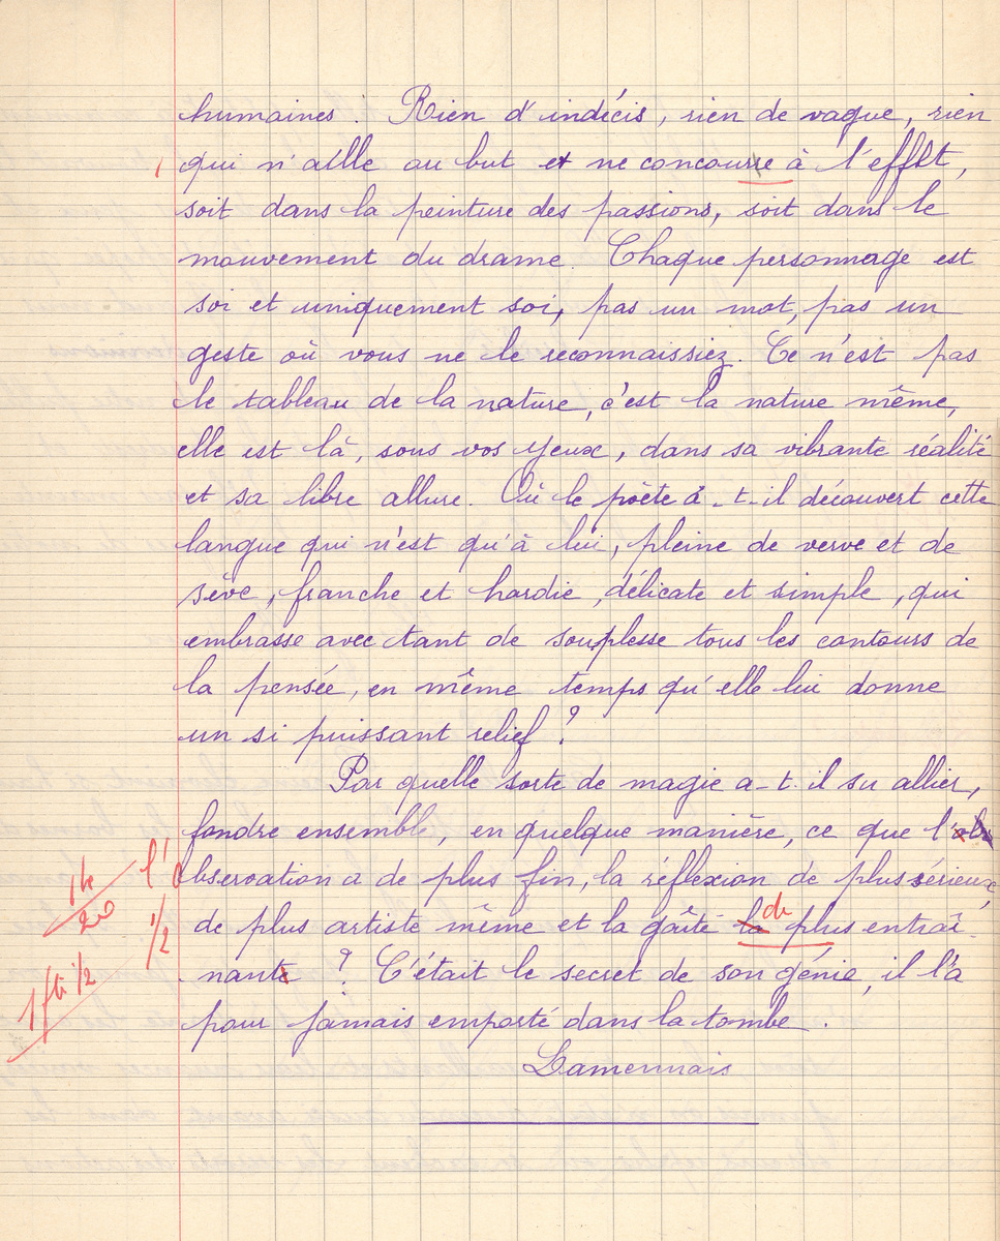 humaines : Rien d'indécis, rien de vague, rien
qui n'aille au but et ne concourre à l'effet,
soit dans la peinture des passions, soit dans le
mouvement du drame. Chaque personnage est
soi et uniquement soi, pas un mot, pas un
geste où vous ne le reconnaissiez. Ce n'est pas
le tableau de la nature, c'est la nature même,
elle est là, sous vos yeux, dans sa vibrante réalité
et sa libre allure. Où le poète a-t-il découvert cette
langue qui n'est qu'à lui, pleine de verve et de
sève, franche et hardie, délicate et simple, qui
embrasse avec tant de souplesse tous les contours de
la pensée, en même temps qu'elle lui donne
un si puissant relief ?
Par quelle sorte de magie a-t-il su allier,
fondre ensemble, en quelque manière, ce que
l'observation a de plus fin, la réflexion de plus sérieux,
de plus artiste même et la gaîté la de plus entraî-
nante ? C'était le secret de son génie, il l'a
pour jamais emporté dans la tombe.
Lamennais
1/2
20
1 fte 1/2